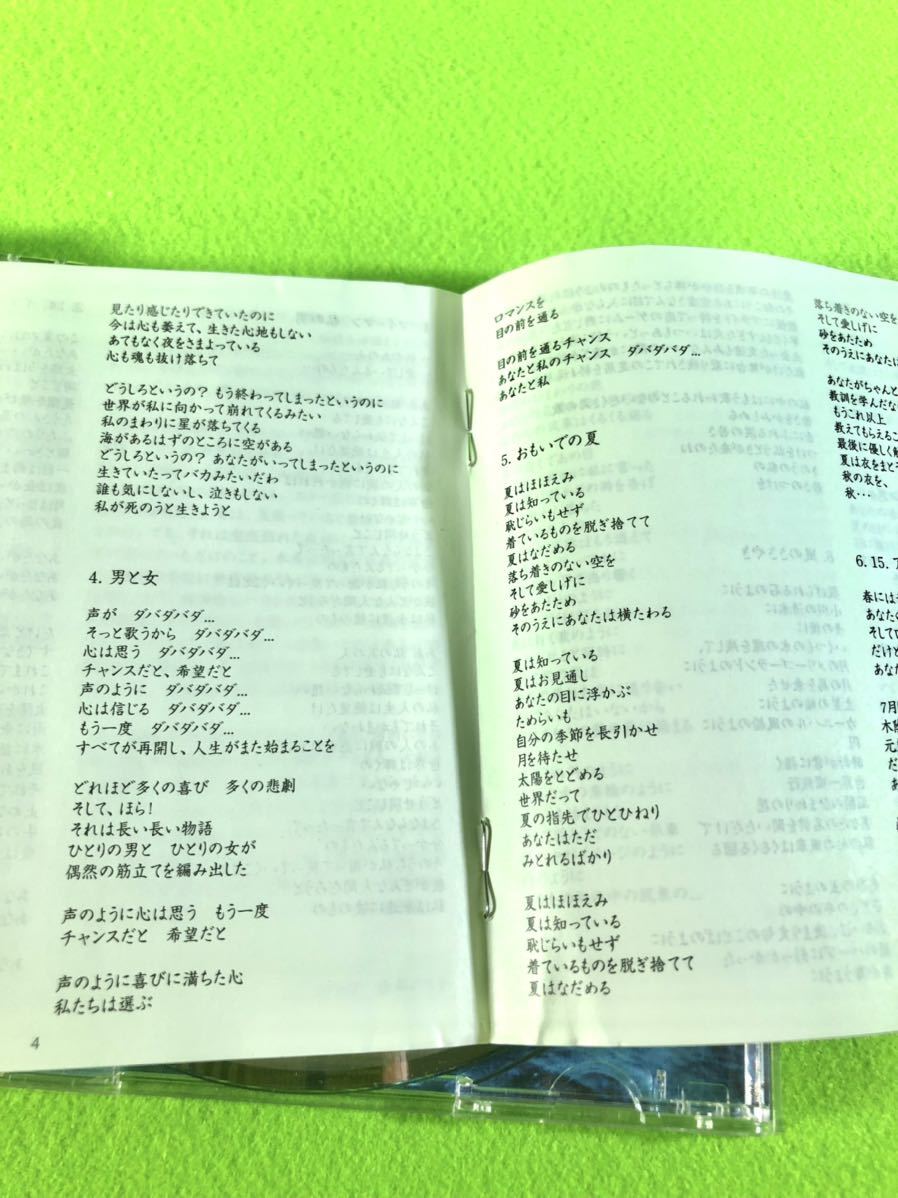 見たり感じたりできていたのに
今は心も萎えて、生きた心地もしない
あてもなく夜をさまよっている
心も魂も抜け落ちて
どうしろというの? もう終わってしまったというのに
世界が私に向かって崩れてくるみたい
私のまわりに星が落ちてくる
海があるはずのところに空がある
どうしろというの? あなたがいってしまったというのに
生きていたってバカみたいだわ
誰も気にしないし、泣きもしない
私が死のうと生きようと
4. 男と女
声が ダバダバダ…
そっと歌うから ダバダバダ…
心は思う ダバダバダ…
チャンスだと、希望だと
声のように ダバダバダ…
心は信じる ダバダバダ…
もう一度 ダバダバダ…
すべてが再開し、人生がまた始まることを
どれほど多くの喜び 多くの悲劇
そして、ほら!
それは長い長い物語
ひとりの男と ひとりの女が
偶然の筋立てを編み出した
声のように心は思う もう一度
チャンスだと 希望だと
声のように喜びに満ちた心
私たちは選ぶ
4
ロマンスを
目の前を通る
目の前を通るチャンス
あなたと私のチャンス ダバダバダ…
あなたと私
5. おもいでの夏
夏はほほえみ
夏は知っている
恥じらいもせず
着ているものを脱ぎ捨てて
夏はなだめる
落ち着きのない空を
そして愛しげに
砂をあたため
そのうえにあなたは横たわる
夏は知っている
夏はお見通し
あなたの目に浮かぶ
ためらいも
自分の季節を長引かせ
月を待たせ
太陽をとどめる
世界だって
夏の指先でひとひねり
あなたはただ
みとれるばかり
夏はほほえみ
夏は知っている
恥じらいもせず
着ているものを脱ぎ捨てて
夏はなだめる
落ち着きのない空を
そして愛しげに
砂をあたため
そのうえにあなたは
あなたがちゃんと
教訓を学んだな
もうこれ以上
教えてもらえるこ
最後に優しく
夏は衣をまと
秋の衣を、
秋…
6.15.
春には
あなたの
そして
だけど
あな
7月
木陰
元
だ